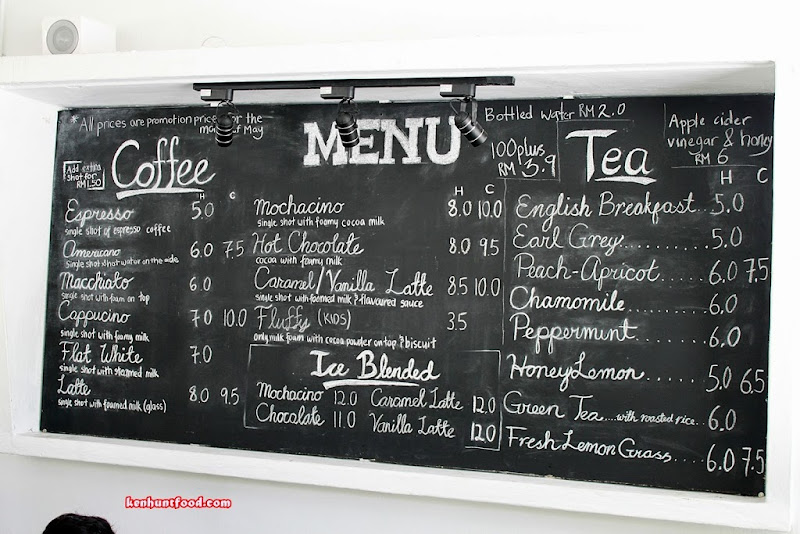 * All prices are promotion prices for the
month of May
MENU
Bottled water RM 2.0
100plus
RM 3.9
Apple cider
vinegar & honey
RM 6
Add extra
shot for
RM 1.50
Coffee
H C
Espresso 5.0
single shot of espresso coffee
Americano 6.0 7.5
single shot shot water on the side
Macchiato 6.0
single shot with foam on top
Cappucino 7.0 10.0
single shot with foamy milk
Flat White 7.0
single shot with steamed milk
Latte 8.0 9.5
single shot with foamed milk (glass)
H C
Mochacino 8.0 10.0
single shot with foamy cocoa milk
Hot Chocolate 8.0 9.5
cocoa with foamy milk
Caramel/Vanilla Latte 8.5 10.0
single shot with foamed milk & flavoured sauce
Fluffy (KIDS) 3.5
only milk foam with cocoa powder on top & biscuit
Ice Blended
Mochacino 12.0 Caramel Latte 12.0
Chocolate 11.0 Vanilla Latte 12.0
Tea
H C
English Breakfast... 5.0
Earl Grey.......... 5.0
Peach-Apricot..... 6.0 7.5
Chamomile 6.0
Peppermint....... 6.0
Honey Lemon....... 5.0 6.5
Green Tea ....with roasted rice... 6.0
Fresh Lemon Grass.... 6.0 7.5
kenhuntfood.com